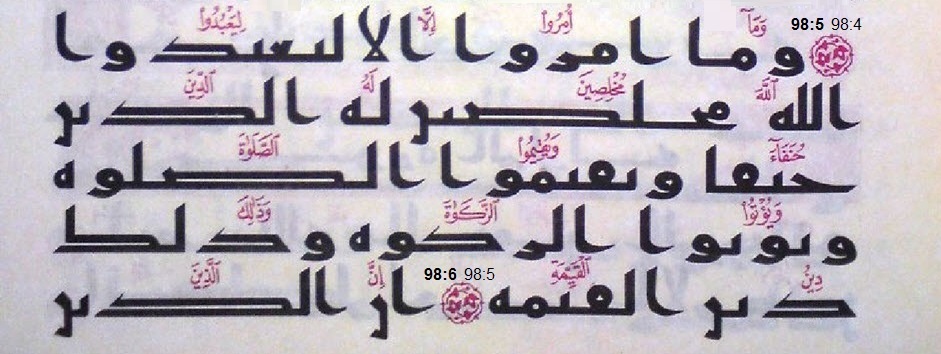 98:5 98:4 وَمَآ أُمِرُوٓا۟ إِلَّا لِيَعْبُدُوا۟
وما امروا الا ليعبدوا
ٱللَّهَ مُخْلِصِينَ لَهُ ٱلدِّينَ
الله مخلصين له الدين
حُنَفَآءَ وَيُقِيمُوا۟ ٱلصَّلَوٰةَ
حنفا ويقيموا الصلوه
وَيُؤْتُوا۟ ٱلزَّكَوٰةَ وَذَٰلِكَ
ويوتوا الزكوه وذلك
دِينُ ٱلْقَيِّمَةِ 98:6 98:5 إِنَّ ٱلَّذِينَ
دين القيمه ان الذين